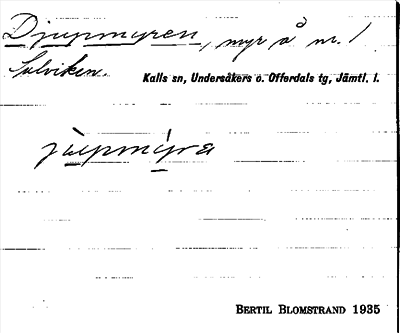 Djupmyren, myr å nr. 1
Solviken.
Kalls sn, Undersåkers o. Offerdals tg, Jämtl. l.
jùpmýra
BERTIL BLOMSTRAND 1935